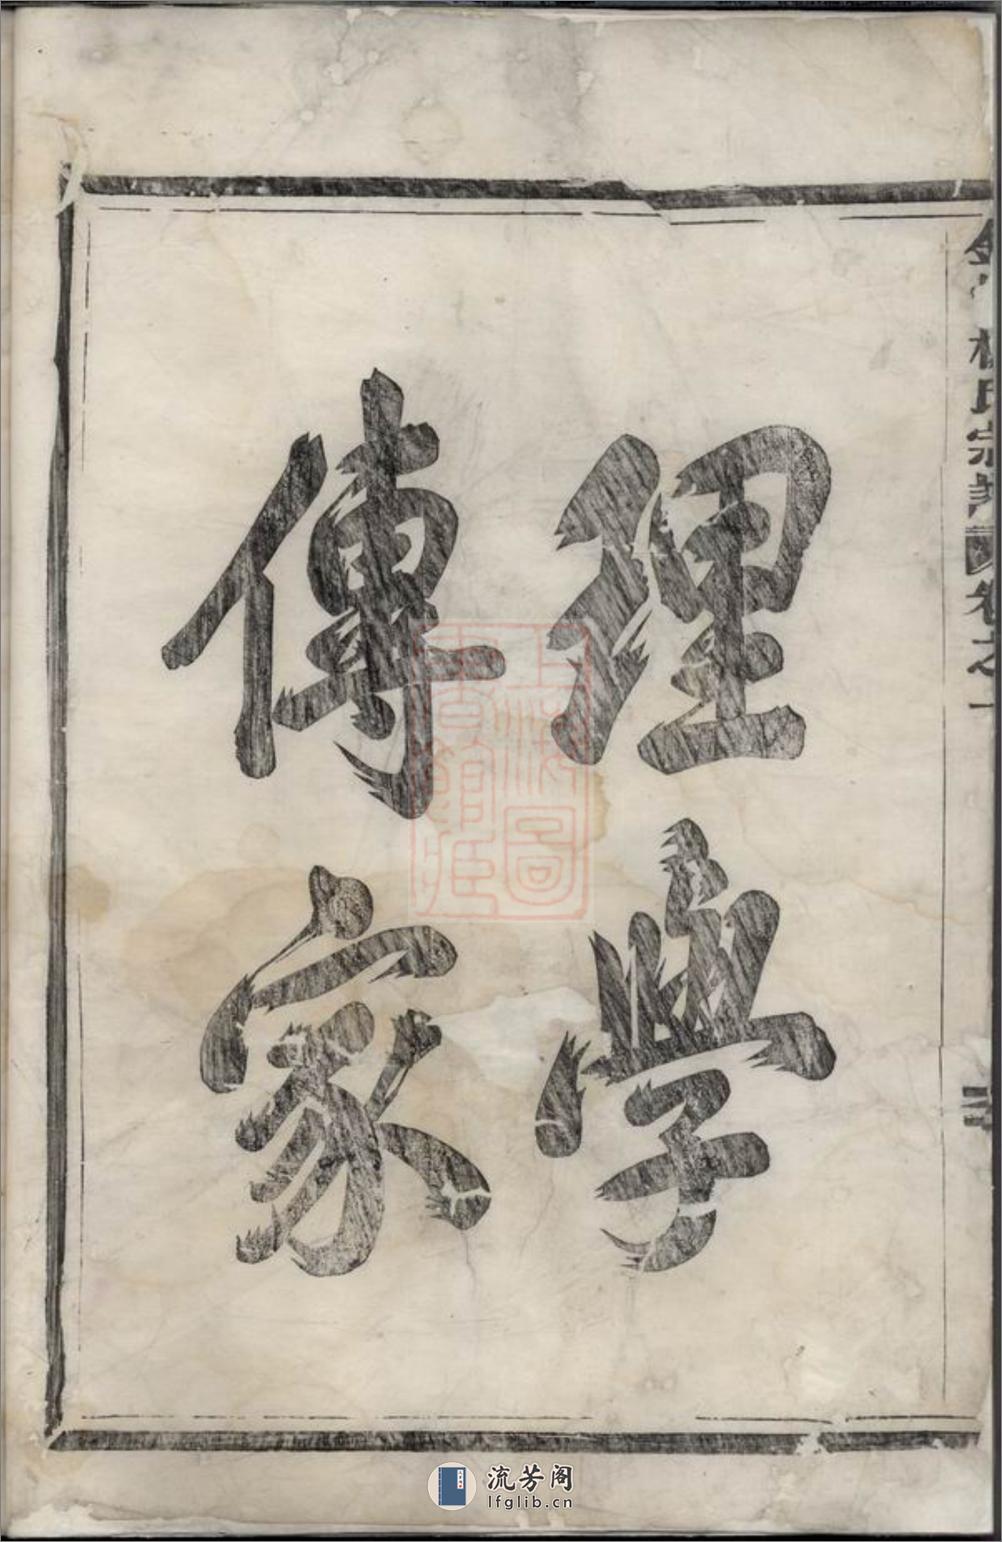 理學
傳家
氏宗譜
卷之一
上海圖
書館藏
流芳阁
lfglib.cn